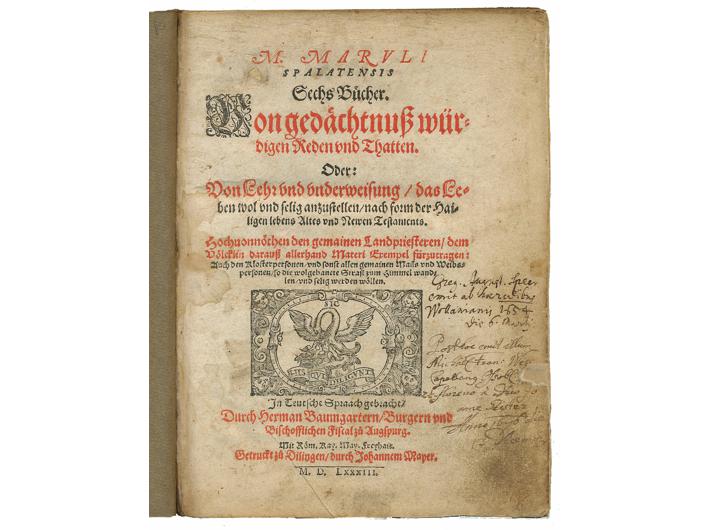 M. MARVLI
SPALATENSIS
Sechs Bücher.
Von gedächtnuß wür-
digen Reden vnd Thatten.
Oder:
Von Lehr vnd vnderweisung / das Le-
ben wol vnd selig anzustellen / nach form der Hai-
ligen lebens Altes vnd Newen Testaments.
Hochuonnöthen den gemainen Landpriesteren / dem
Völcklin darauß allerhand Materi Exempel fürzutragen:
Auch den Klosterpersonen / vnd sonst allen gemainen Mañs vnd Weibs-
personen / so die wolgebahnte Straß zum Himmel wandl
len / vnd selig werden wöllen.
SIC
HIS QVI DILIGVNT
In Teutsche Spraach gebracht /
Durch Herman Baumgartern / Burgern vnd
Bischofflichen Fiscal zů Augspurg.
Mit Röm. Kay. May. Freyhait.
Getruckt zů Dilingen / durch Johannem Mayer.
M. D. LXXXIII.
Greg. August.
emit ab
1654
Post hoc emit